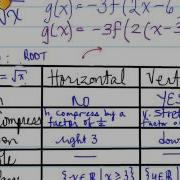 √x
g(x) = -3f(2x-6
g(x) = -3f(2(x-3
: ROOT
= √x
Horizontal
Vert
NO
YES
compress
h. compress by a
factor of 1/2
v. stre
factor o
on
right 3
dow
ble
{x∈R | x≥3}
{y∈R